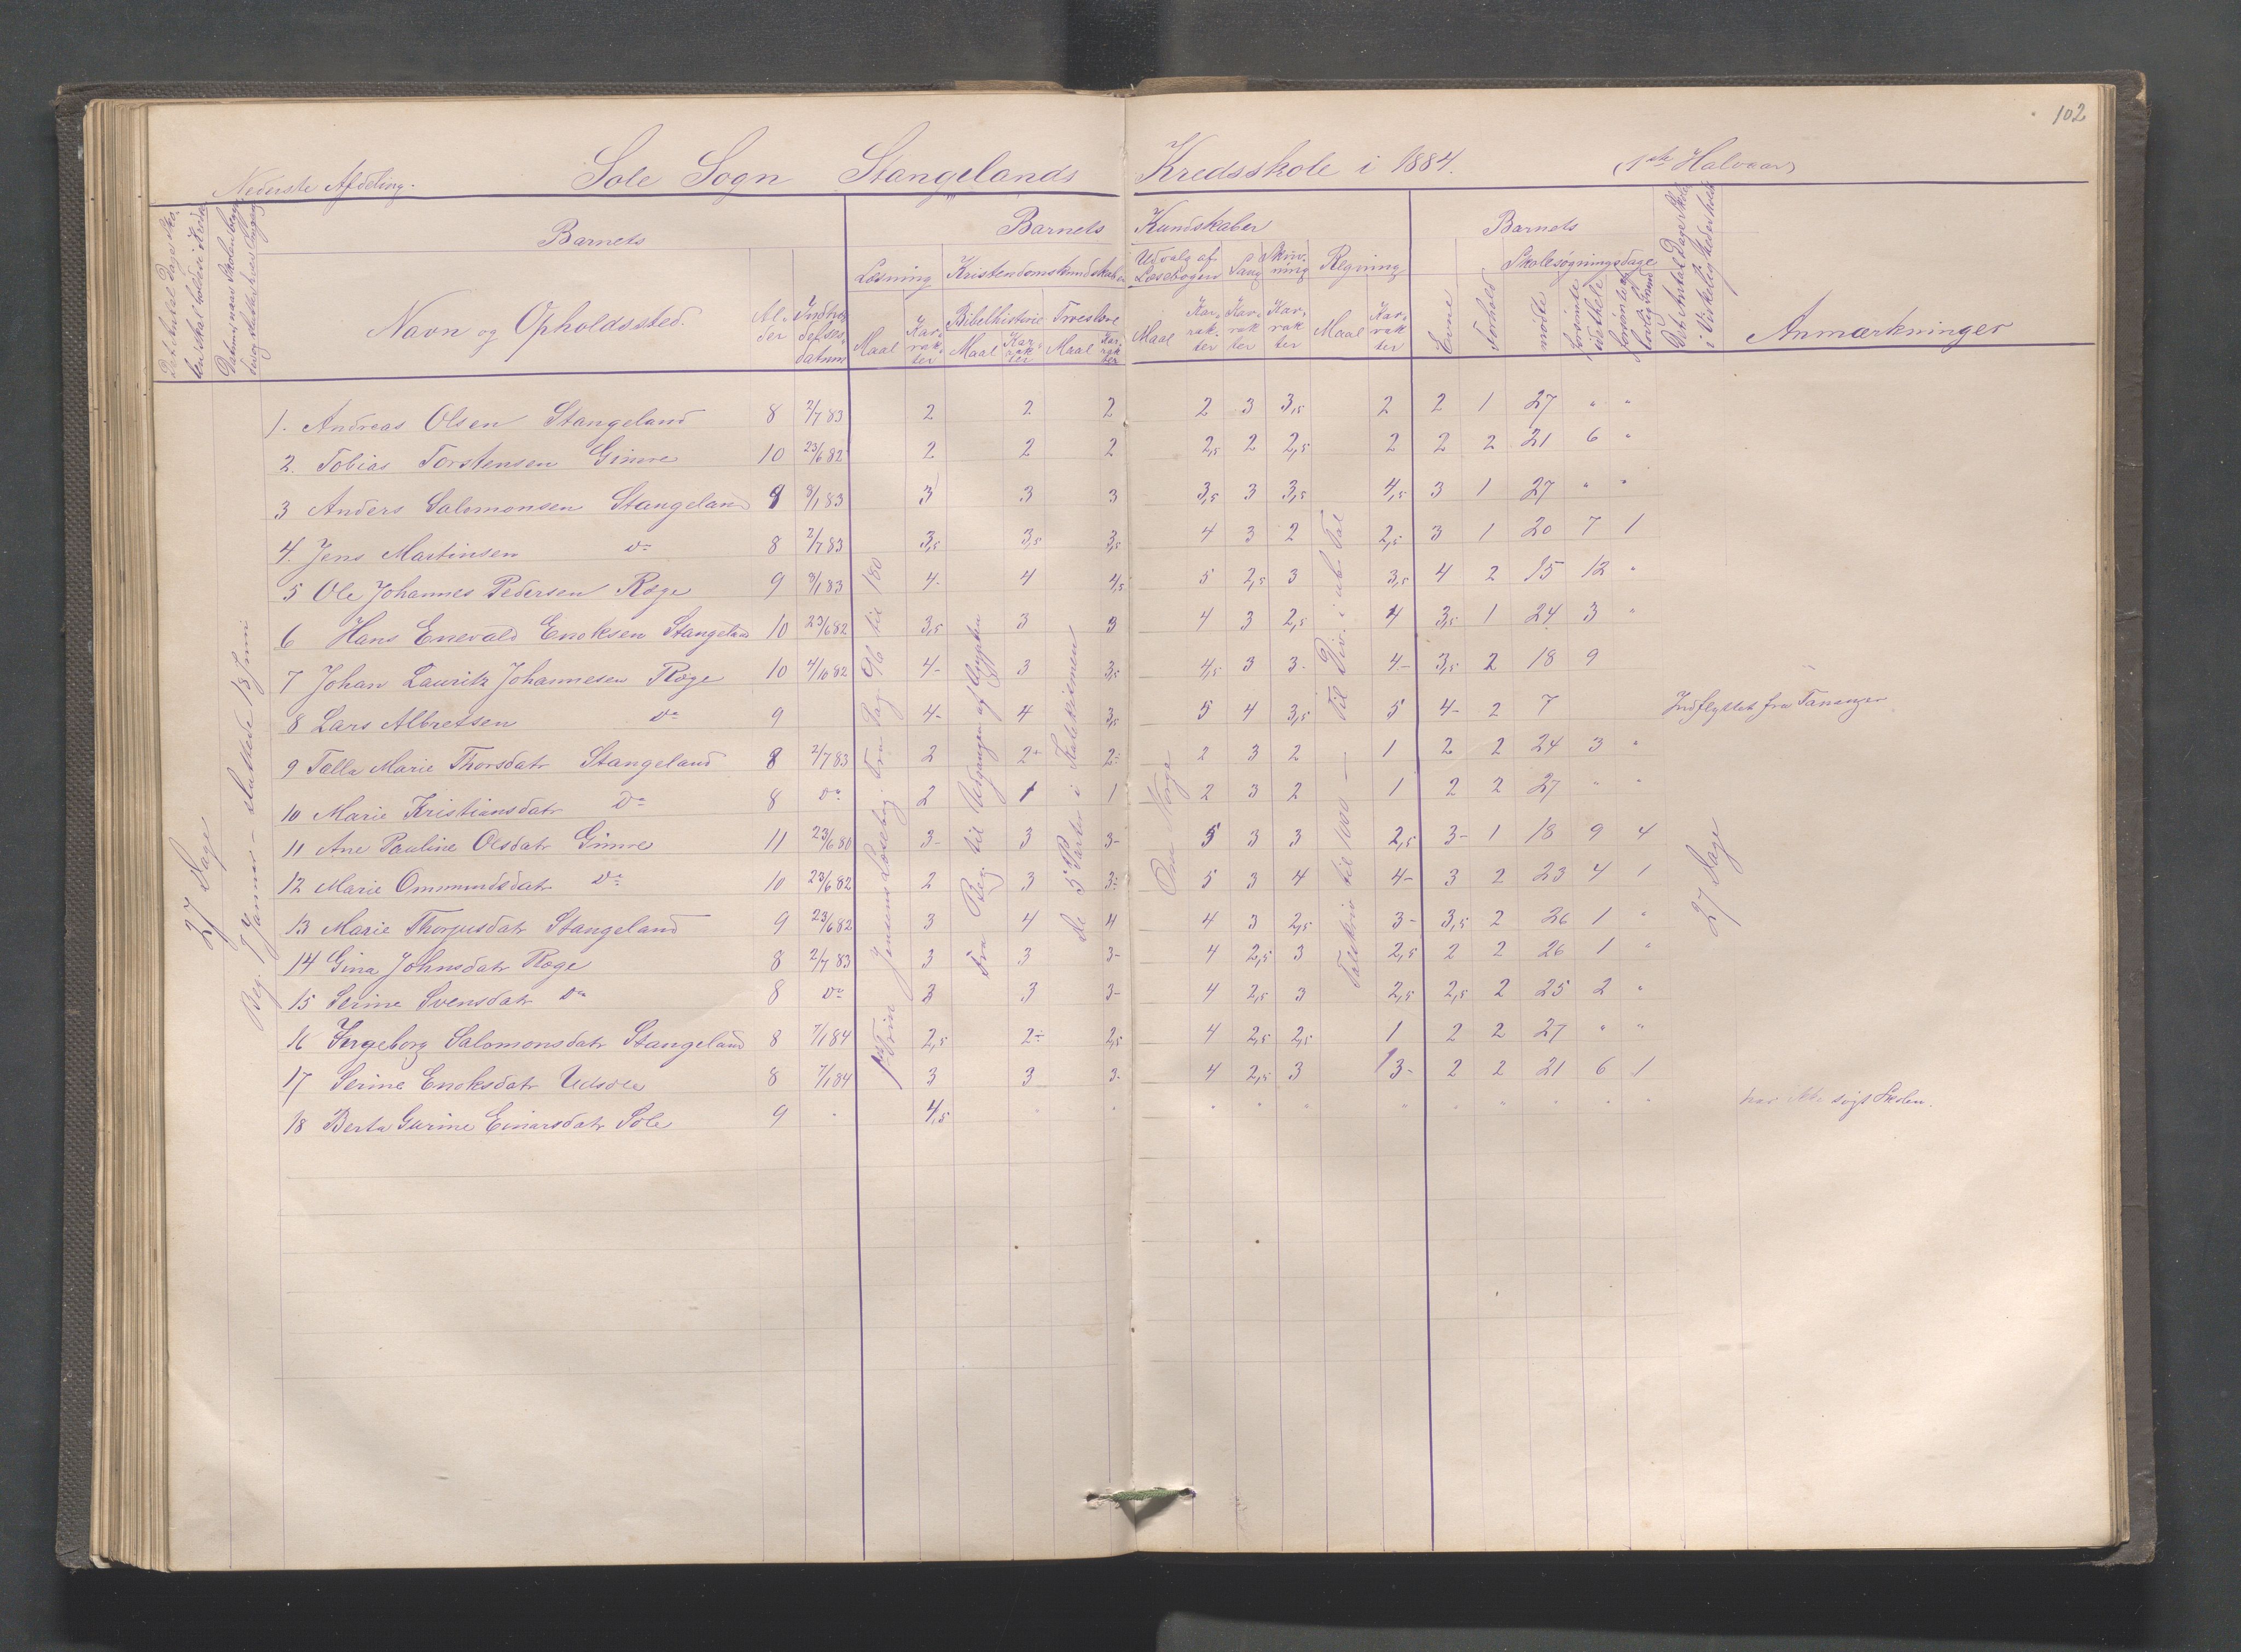 102
Nederste Afdeling. Sole Sogn Stangelands Kredsskole i 1884. (1ste Halvaar)
Barnets Barnets Kundskaber Barnets
Læsning Kristendomskundskaber Udvalg af Læsebogen Sang Skrivning Regning Skolesøgningsdage
Navn og Opholdssted. Alder Indtrædelsesdatum Maal Karakter Bibelhistorie Troeslære Maal Karakter Maal Karakter Maal Karakter Karakter Karakter Maal Karakter Evne Forhold mødte forsømte Anmærkninger
27 Dage
Beg. 7 Januar – sluttede 18 Juni
1. Andreas Olsen Stangeland 8 2/7 83 2 2 2 2 3 3,5 2 2 1 27 " "
2. Tobias Torstensen Gimre 10 23/6 82 2 2 2 2,5 2 2,5 2 2 2 21 6 "
3 Anders Salomonsen Stangeland 8 8/1 83 3 3 3 3,5 3 3,5 4,5 3 1 27 " "
4. Jens Martinsen do 8 2/7 83 3,5 3,5 3,5 4 3 2 2,5 3 1 20 7 1
5 Ole Johannes Pedersen Røge 9 8/1 83 4- 4 4,5 5 2,5 3 3,5 4 2 15 12 "
6 Hans Enevald Enoksen Stangeland 10 23/6 82 3,5 3 3 4 3 2,5 4 3,5 1 24 3 "
7 Johan Lauritz Johannesen Røge 10 4/10 82 4- 3 3,5 4,5 3 3- 4- 3,5 2 18 9
8 Lars Albretsen do 9 4- 4 3,5 5 4 3,5 5 4- 2 7 Indflyttet fra Tananger
9 Talla Marie Thorsdatr Stangeland 8 2/7 83 2 2+ 2÷ 2 3 2 1 2 2 24 3 "
10 Marie Kristiansdatr do 8 do 2 1 1 2 3 2 1 2 2 27 " "
11 Ane Pauline Olsdatr Gimre 11 23/6 80 3- 3 3- 5 3 3 2,5 3- 1 18 9 4
12 Marie Ommundsdatr do 10 23/6 82 2 3 3÷ 5 3 4 4- 3 2 23 4 1
13 Marie Thorjusdatr Stangeland 9 23/6 82 3 4 4 4 3 2,5 3- 3,5 2 26 1 "
14 Gina Johnsdatr Røge 8 2/7 83 3 3 3- 4 2,5 3 2,5 2 2 26 1 "
15 Serine Svensdatr do 8 do 3 3 3- 4 2,5 3 2,5 2,5 2 25 2 "
16 Ingeborg Salomonsdatr Stangeland 8 7/1 84 2,5 2÷ 2,5 4 2,5 2,5 1 2 2 27 " "
17 Serine Enoksdatr Udsole 8 7/1 84 3 3 3- 4 2,5 3 3- 2 2 21 6 1
18 Berta Gurine Einarsdatr Sole 9 " 4,5 " " " " " " " " " " " har ikke søgt Skolen.
1ste Trin Jensens Læsebog. Trin Pag. 96 til 180
Fra Beg. til Udgangen af Ægypten
De 3 Parter i Katekismen
Om Norge
Talskriv til 1000 – Til Div. i ub. Tal
27 Dage